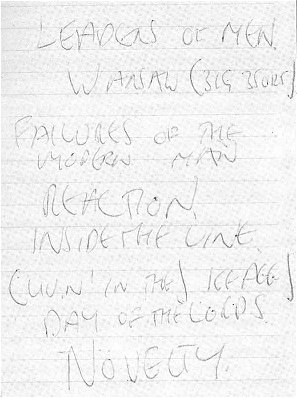 LEADERS OF MEN.
WARSAW (3156 350RS)
FAILURES OF THE
MODERN MAN
REACTION.
INSIDE THE LINE.
(LIVIN' IN THE) ICE AGE
DAY OF THE LORDS.
NOVELTY.